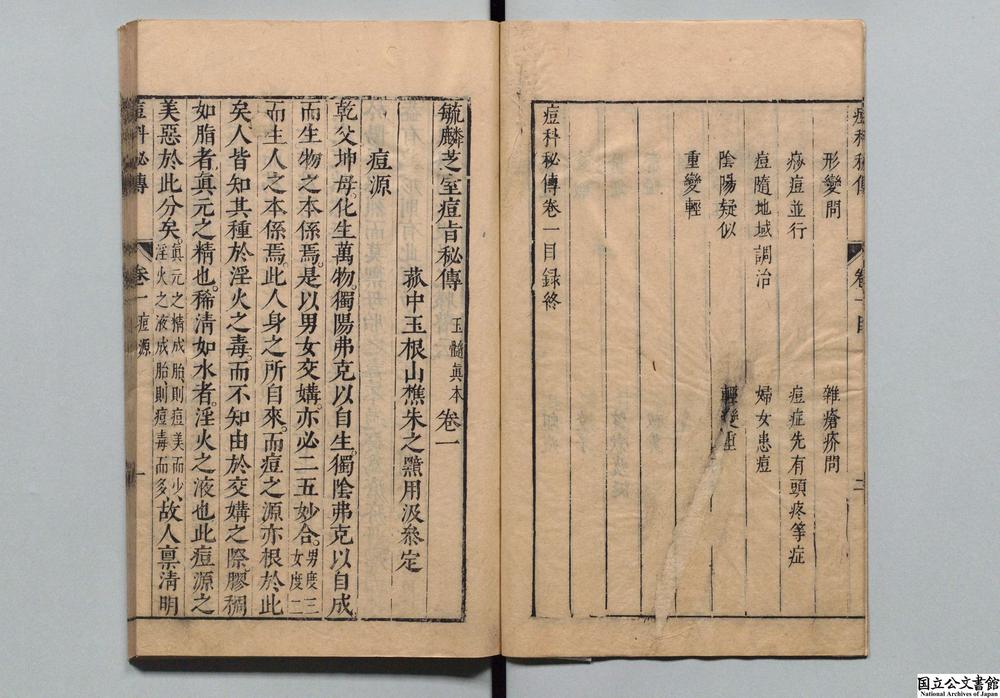 形變問
雜瘡疥問
痧痘並行
痘症先有頭疼等症
痘隨地域調治
婦女患痘
陰陽疑似
輕變重
重變輕
痘科秘傳卷一目録終
毓麟芝室痘旨秘傳 玉髓眞本 卷一
菰中玉根山樵朱之黯用汲叅定
痘源
乾父坤母。化生萬物。獨陽弗克以自生。獨陰弗克以自成
而生物之本係焉。是以男女交媾。亦必二五妙合。男度三女度二
而生人之本係焉。此人身之所自來。而痘之源亦根於此
矣。人皆知其種於淫火之毒。而不知由於交媾之際。膠稠
如脂者。眞元之精也。稀清如水者。淫火之液也。此痘源之
美惡於此分矣。眞元之精成胎。則痘美而少。淫火之液成胎。則痘毒而多。故人禀清明
痘科秘傳 卷一 痘源 一
国立公文書館
National Archives of Japan